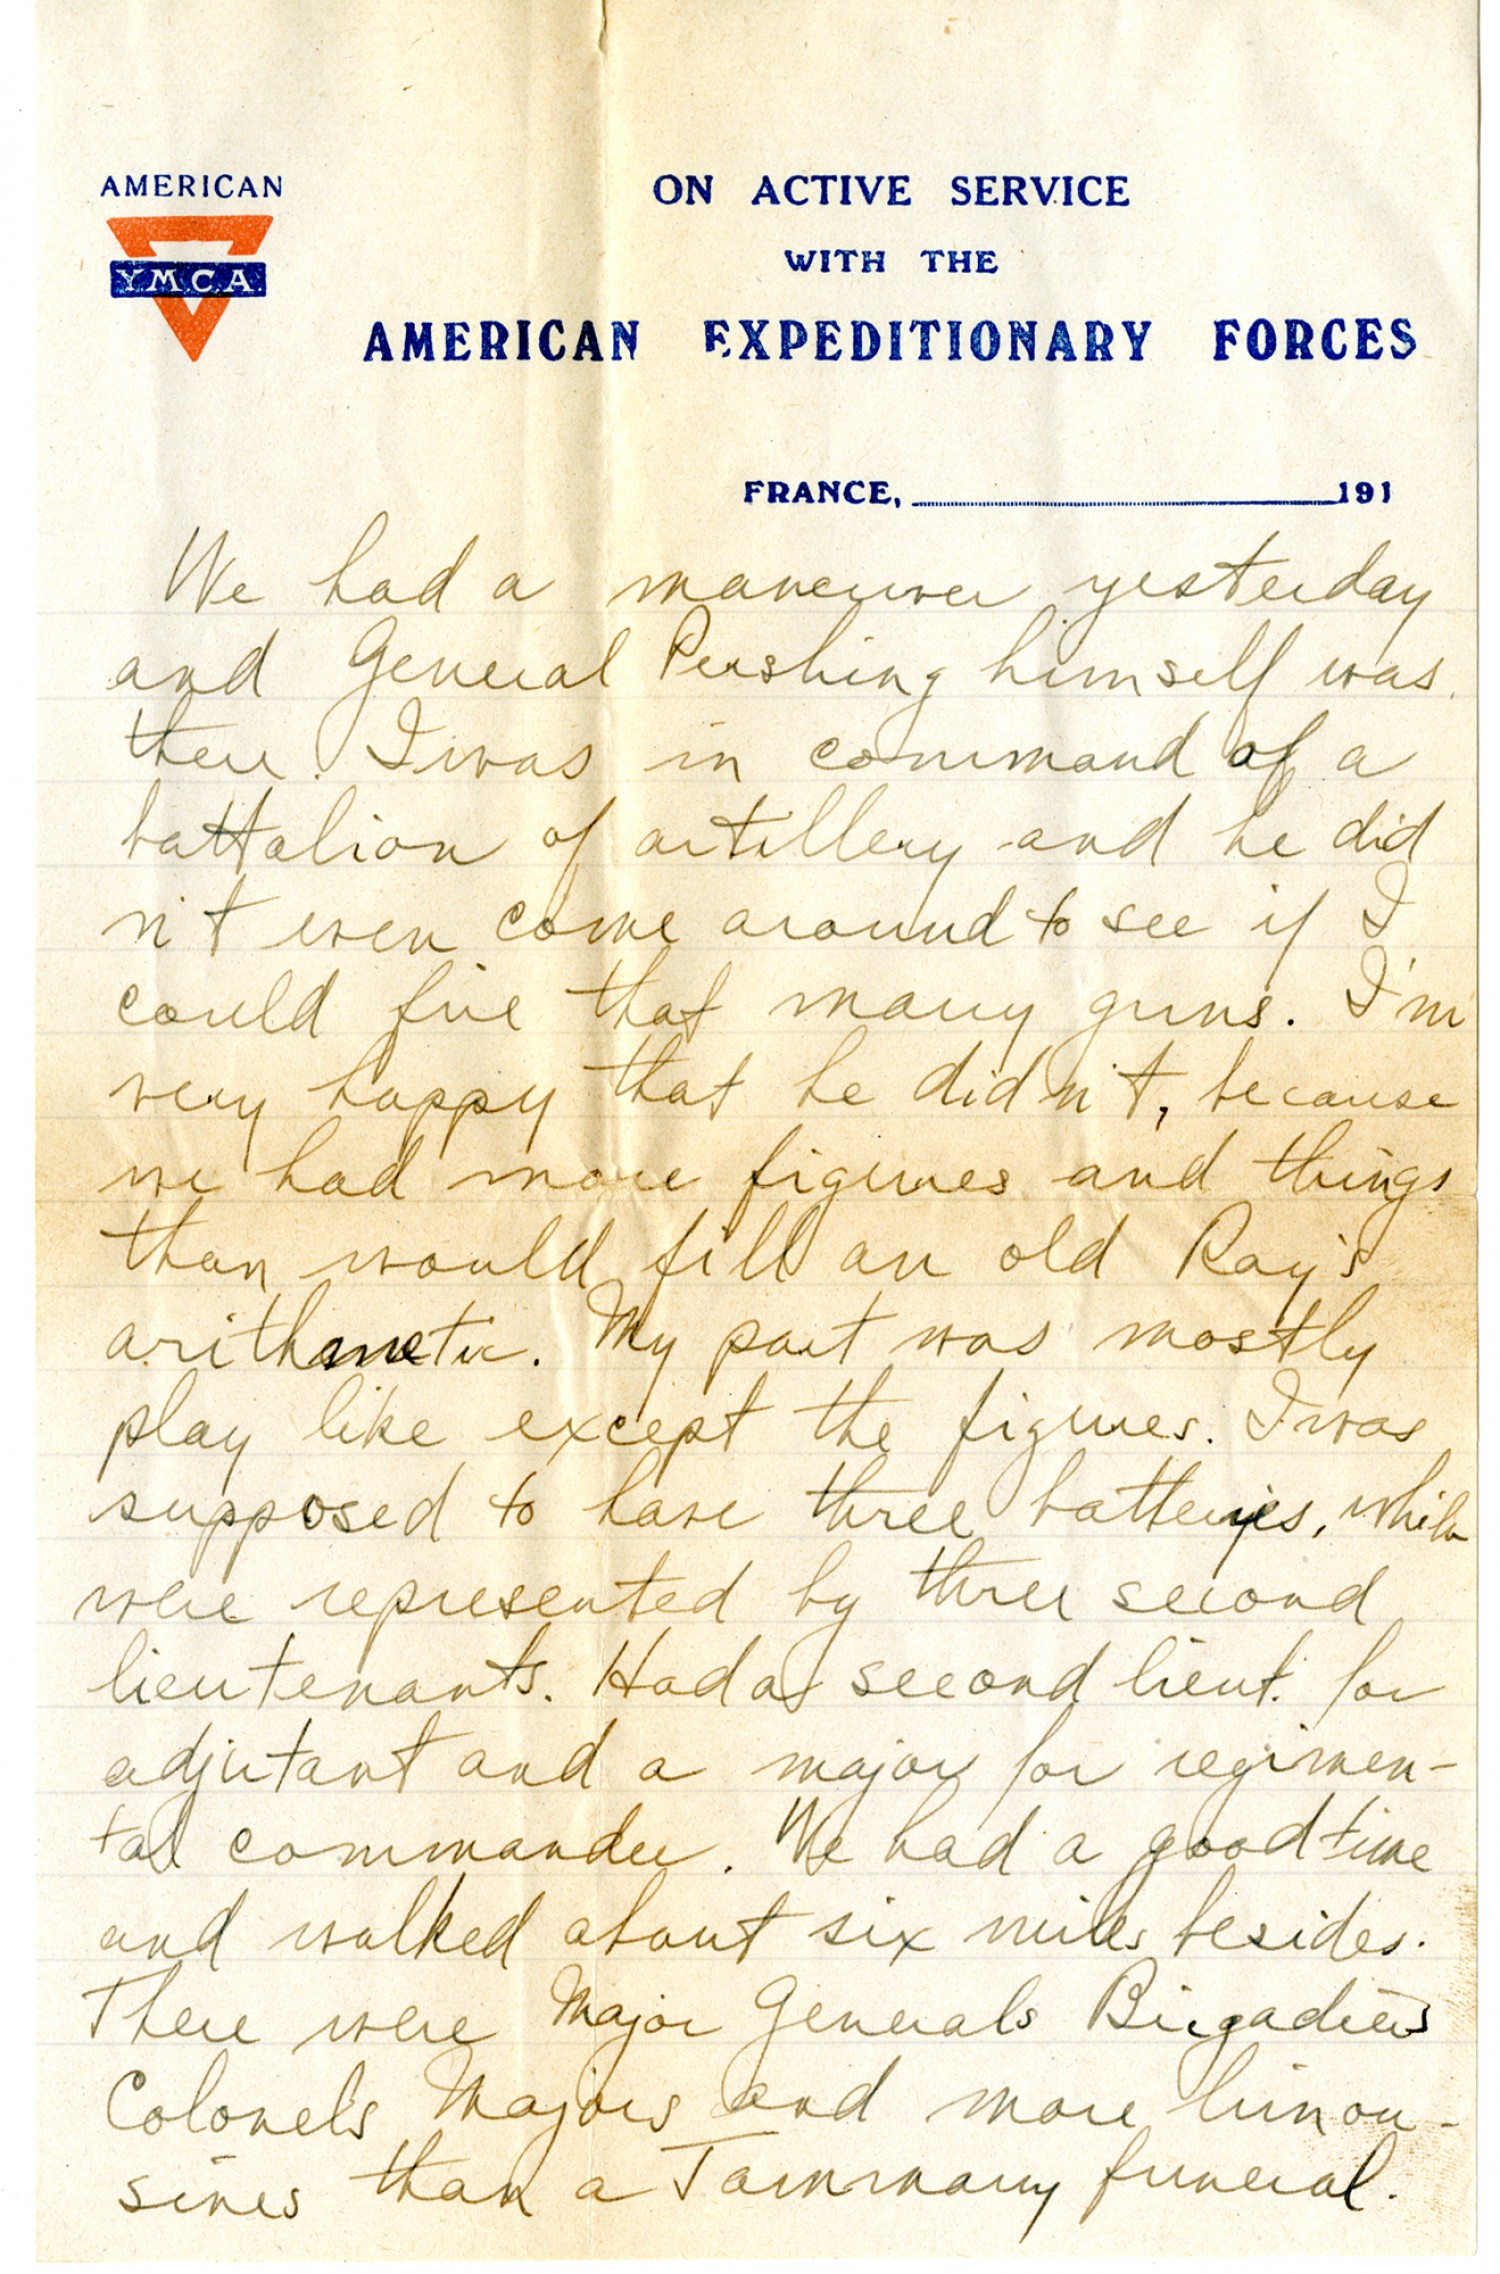 AMERICAN
YMCA
ON ACTIVE SERVICE
WITH THE
AMERICAN EXPEDITIONARY FORCES
FRANCE, 191
We had a maneuver yesterday
and General Pershing himself was
there. I was in command of a
battalion of artillery and he did
n't even come around to see if I
could fire that many guns. I'm
very happy that he didn't, because
we had more figures and things
than would fill an old Ray's
arithmetic. My part was mostly
play like except the figures. I was
supposed to have three batteries, which
were represented by three second
lieutenants. Had a second lieut. for
adjutant and a major for regimen-
tal commander. We had a good time
and walked about six miles besides.
There were Major Generals Brigadiers
Colonels Majors and more limou-
sines than a Tammany funeral.